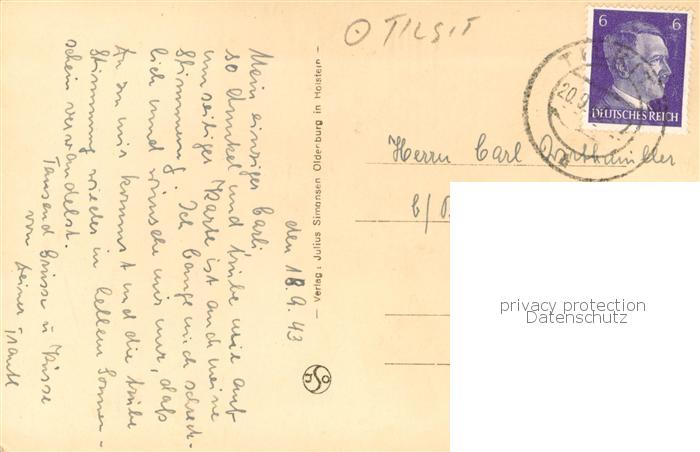 ⊙ TILSIT
6 6
DEUTSCHES REICH
20.9.
Herrn Carl
b/
privacy protection
Datenschutz
— Verlag: Julius Simonsen Oldenburg in Holstein —
den 18.9.43
Mein einziger Carli
so dunkel und trübe wie auf
umseitiger Karte ist auch meine
Stimmung. Ich bange mich schreck-
lich und wünsche mir nur, daß
Du zu mir kommst und die trübe
Stimmung wieder in hellem Sonnen-
schein verwandelst.
Tausend Grüsse u Küsse
von Deiner